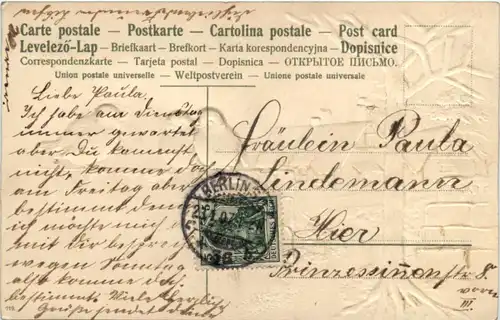 Carte postale — Postkarte — Cartolina postale — Post card
Levelező-Lap — Briefkaart — Brefkort — Karta korespondencyjna — Dopisnice
Correspondenzkarte — Tarjeta postal — Dopisnica — ОТКРЫТОЕ ПИСЬМО.
Union postale universelle — Weltpostverein — Unione postale universale
Liebe Paula.
Ich habe am Dienstag
immer gewartet
aber Du kommst
nicht, komme doch
am Freitag aber
bestimmt denn
ich möchte mich
mit Dir besprechen
wegen Sonntag
also komme doch
bestimmt. Viele herzliche
Grüße sendet deine
Fräulein Paula
Lindemann
Hier
Prinzessinnenstr 8.
vorn
III.
BERLIN
115